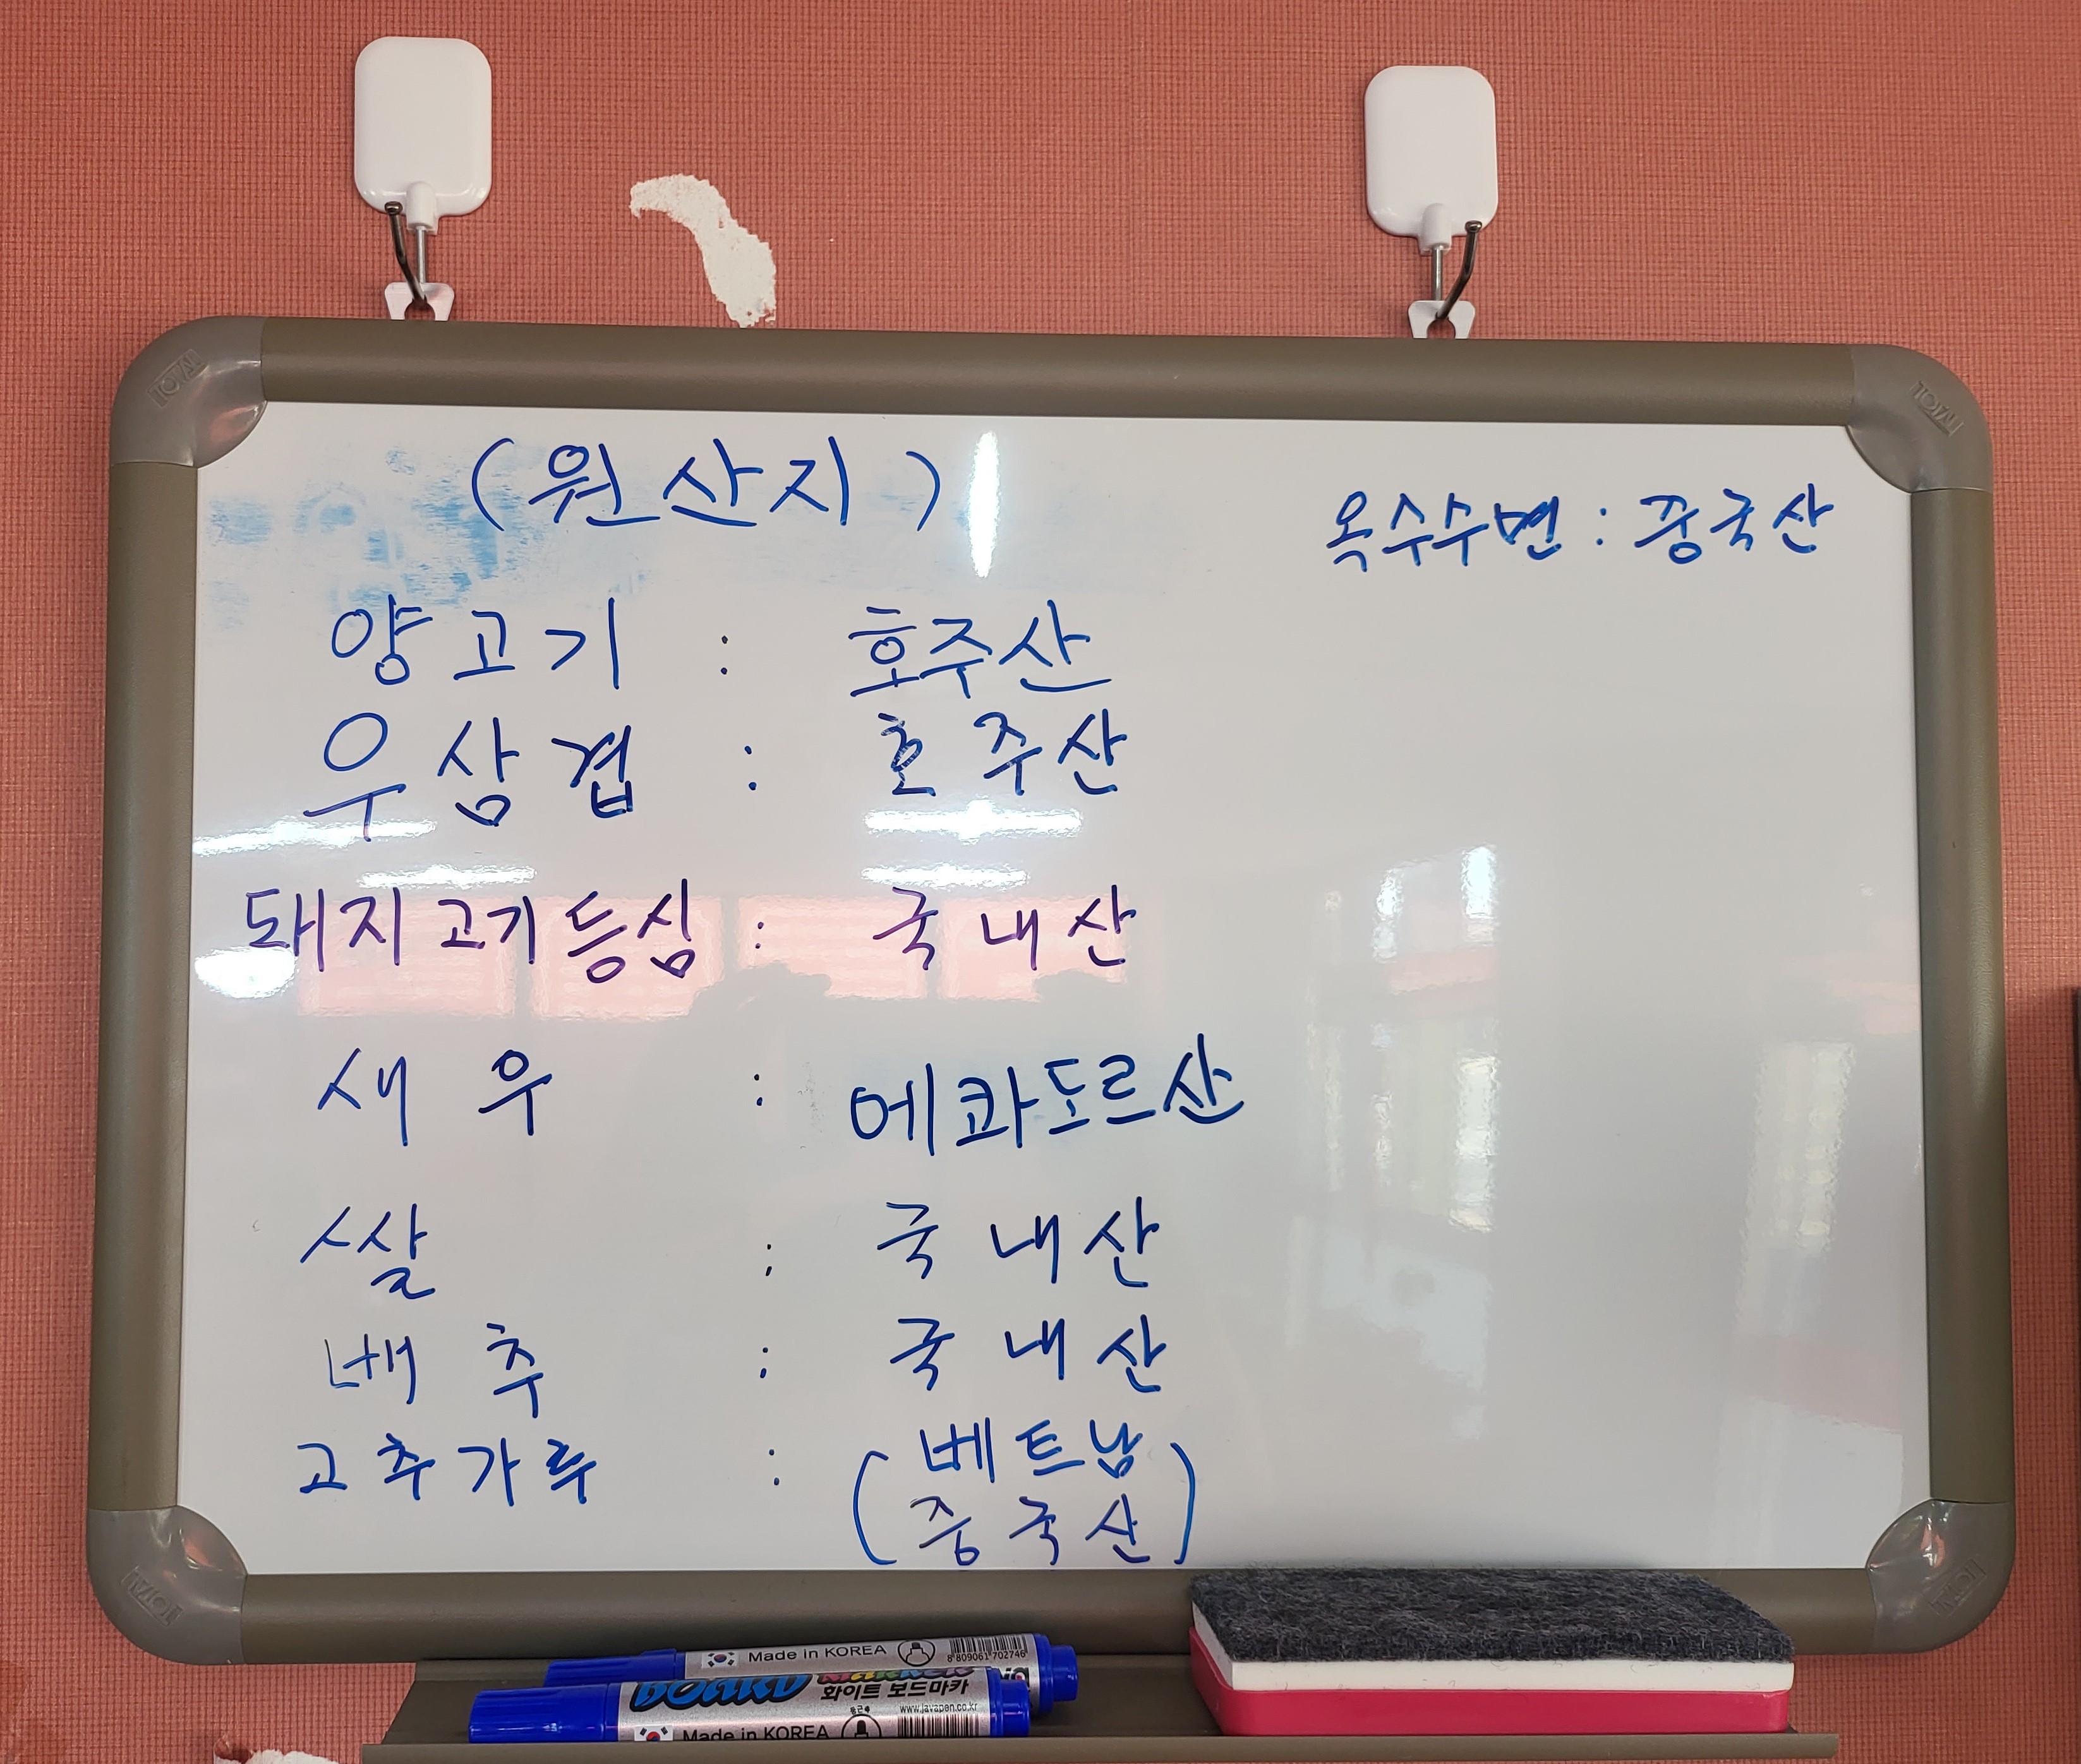 (원산지)
옥수수면 : 중국산
양고기 : 호주산
우삼겹 : 호주산
돼지고기등심 : 국내산
새우 : 에콰도르산
쌀 : 국내산
배추 : 국내산
고추가루 : (베트남
중국산)
Made in KOREA
8 809061 702746
BOARD MARKER
화이트 보드마카
www.javapen.co.kr
Made in KOREA
TOVAL
TOVAL
TOVAL
TOVAL